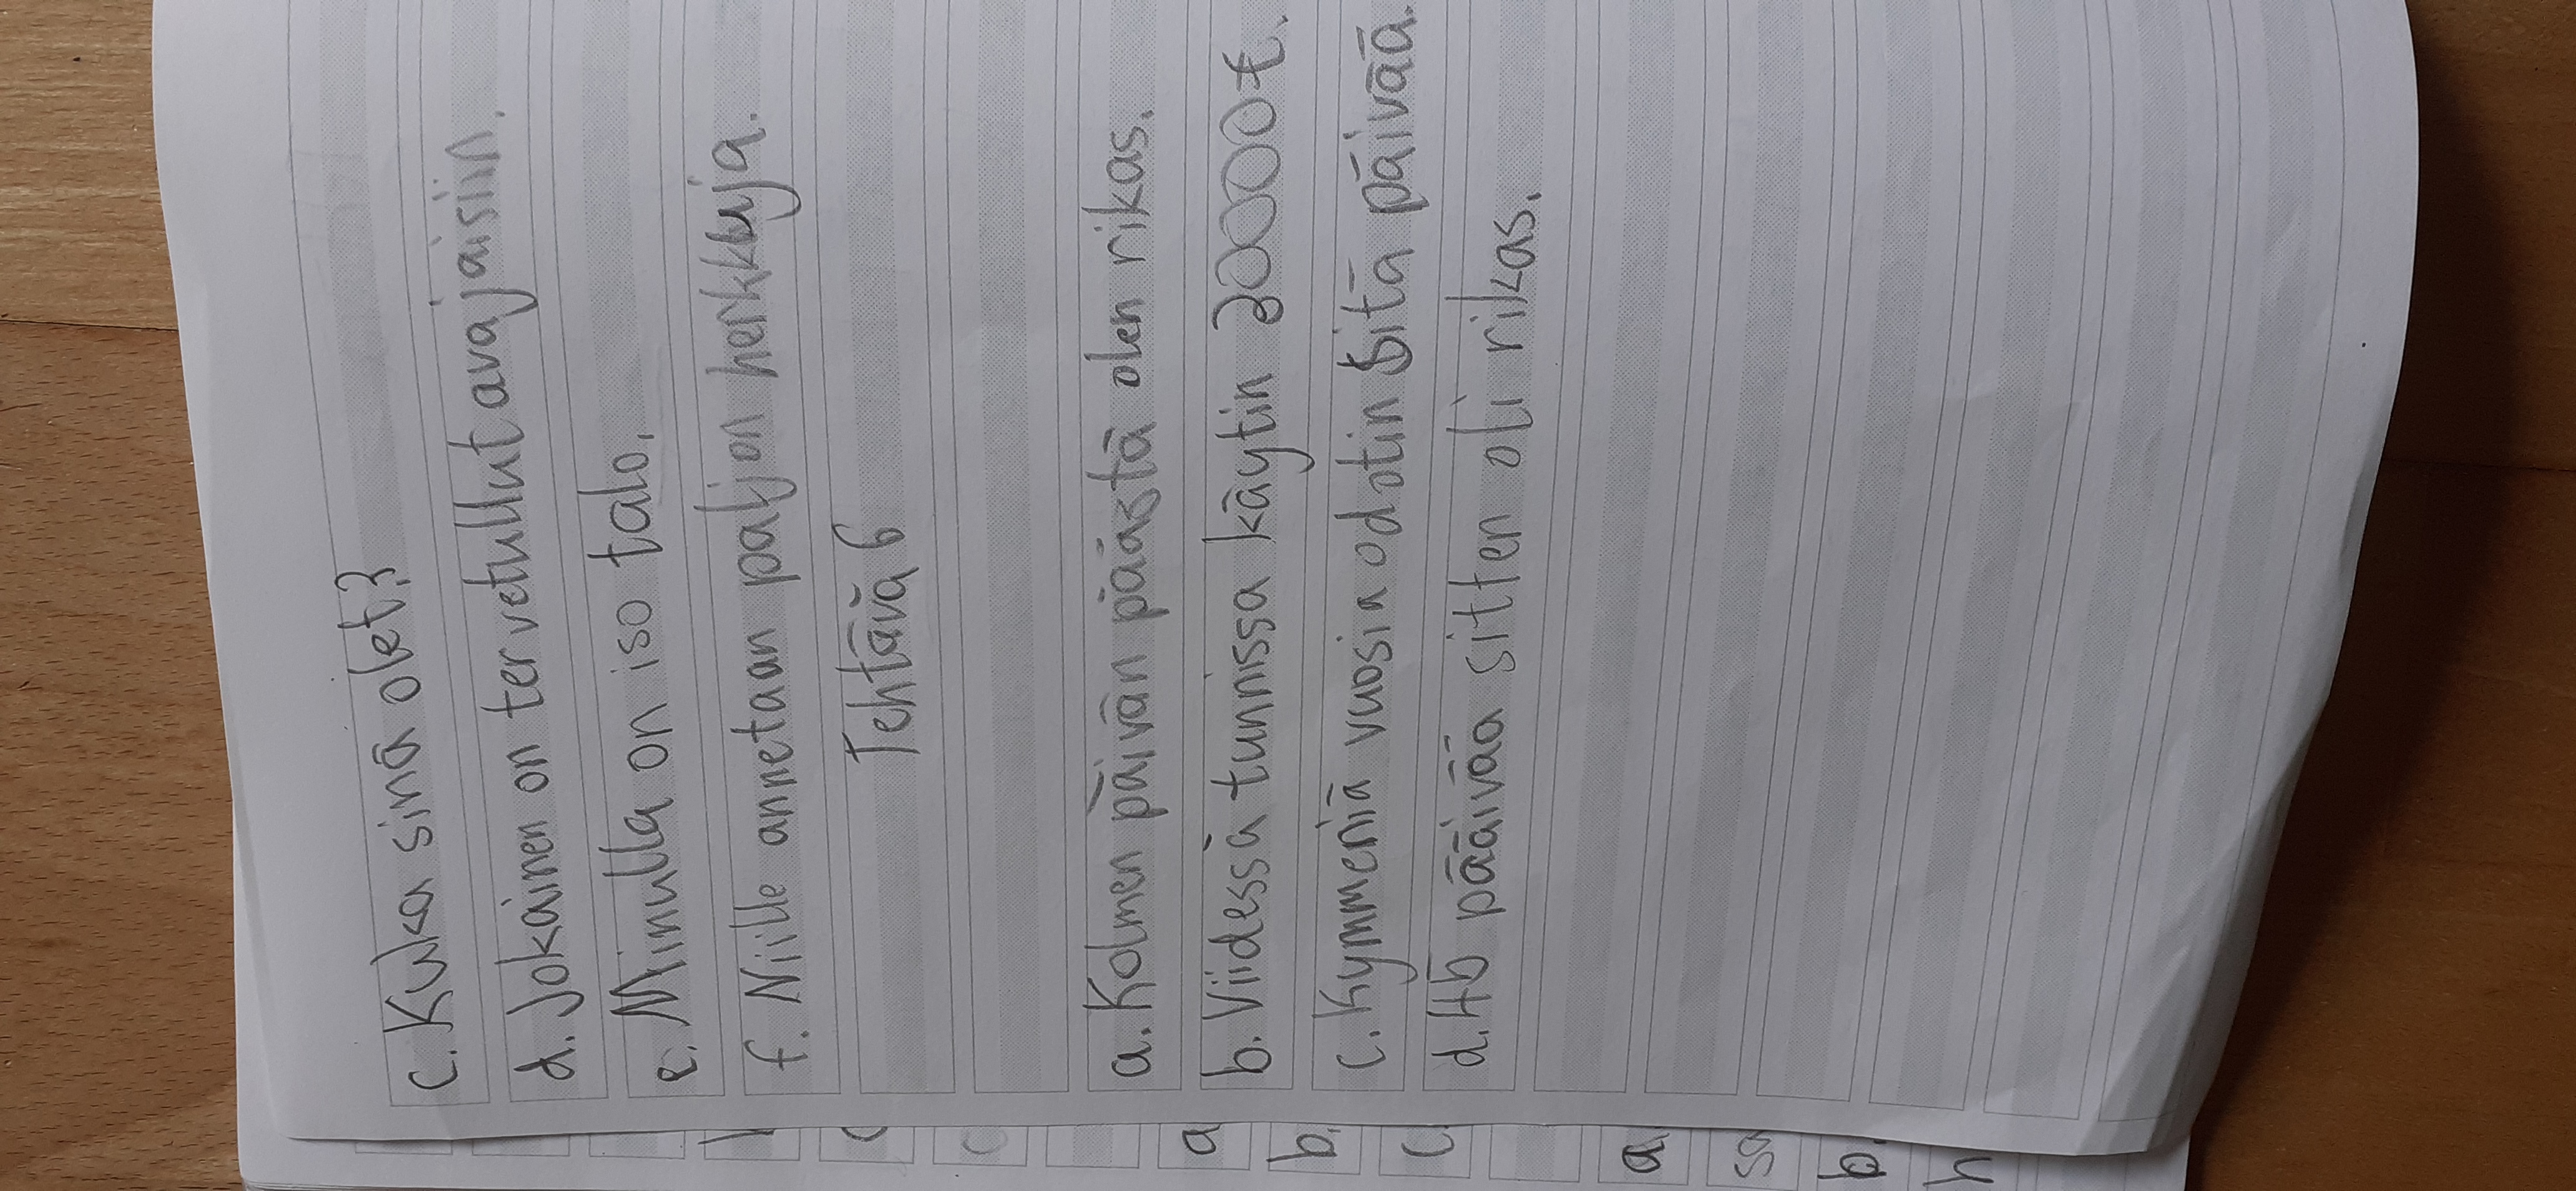 c. Kuka sinä olet?
d. Jokainen on tervetullut avajaisiin.
e. Minulla on iso talo.
f. Niille annetaan paljon herkkuja.
Tehtävä 6
a. Kolmen päivän päästä olen rikas.
b. Viidessä tunnissa käytin 20000€.
c. Kymmeniä vuosia odotin sitä päivää.
d. päivää sitten oli rikas.
a
b.
c
a.
sa
b.
h